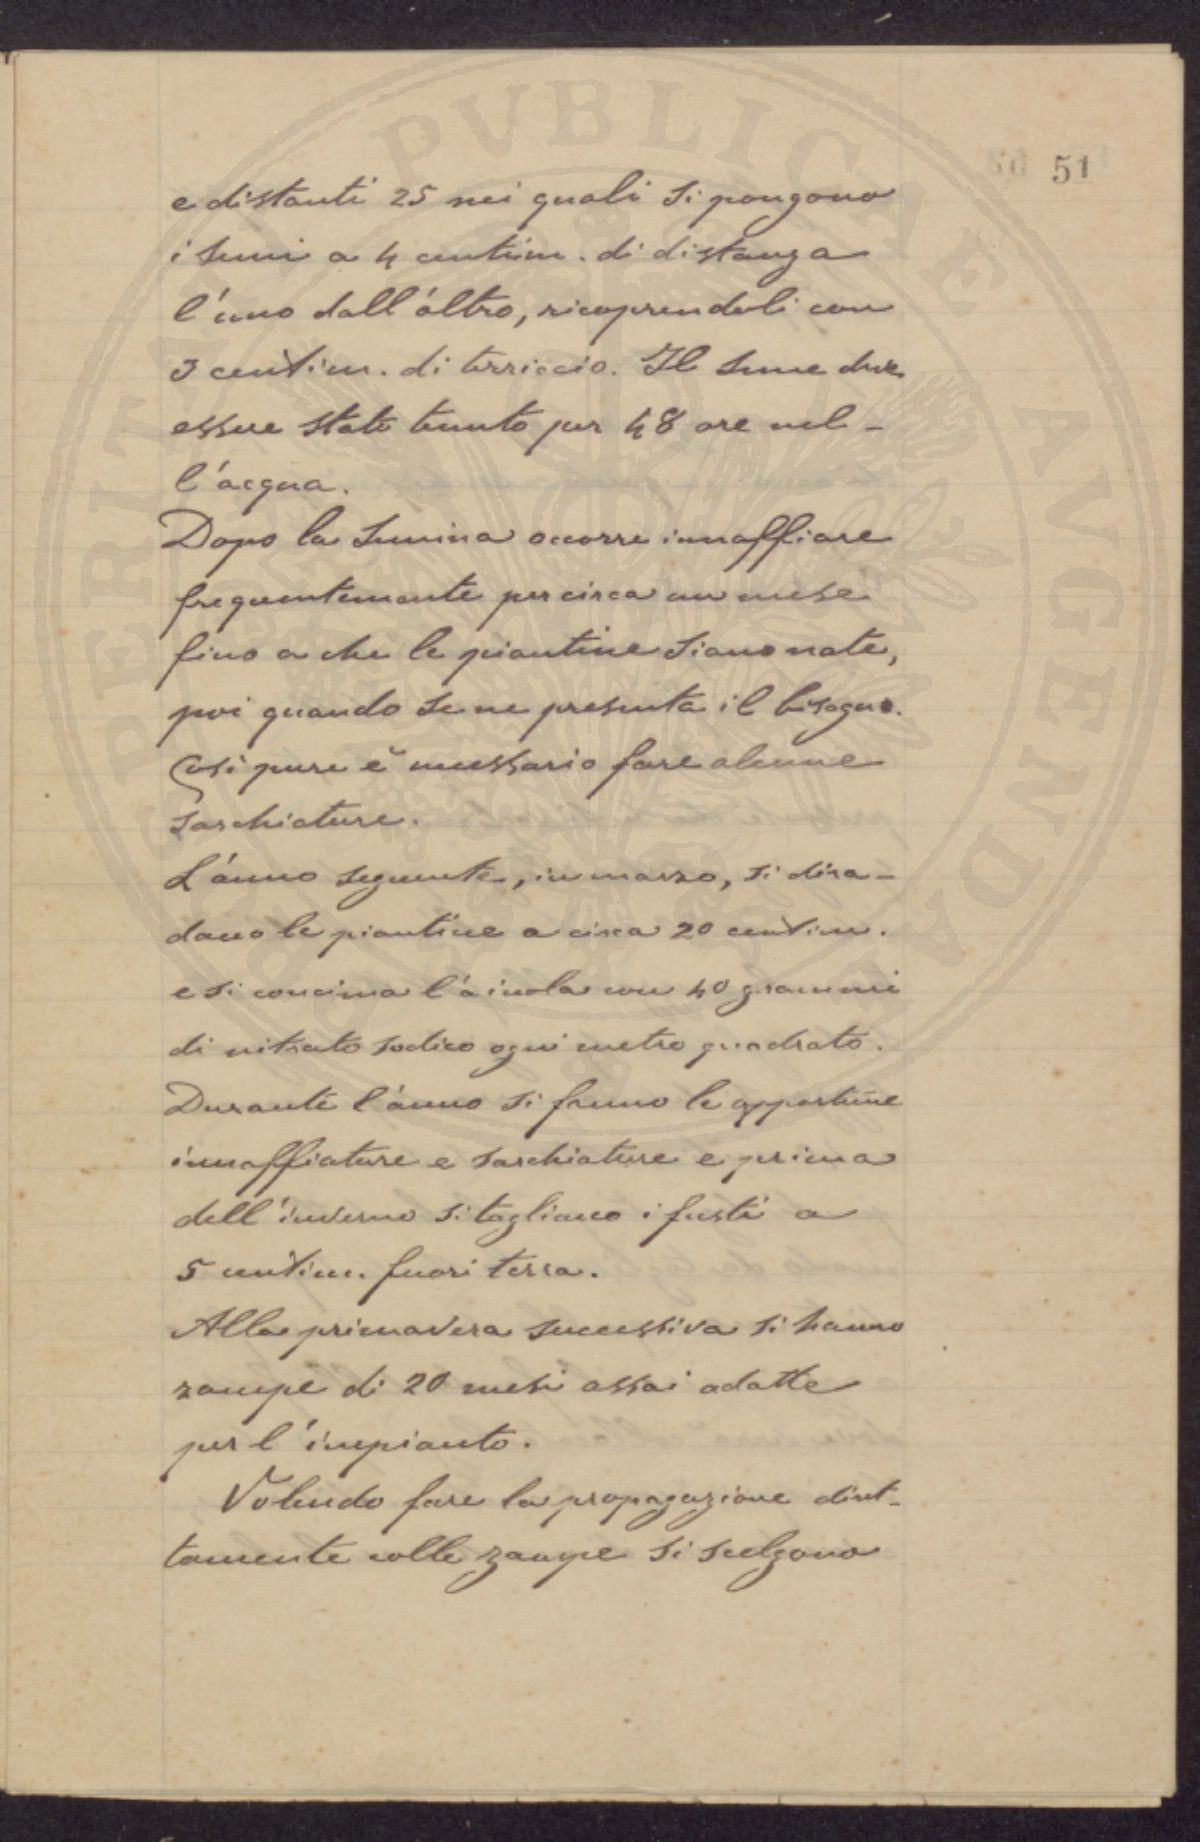 PROSPERITATI PVBLICAE AVGENDAE
51
e distanti 25 nei quali si pongono
i semi a 4 centim. di distanza
l'uno dall'altro, ricoprendoli con
3 centim. di terriccio. Il seme deve
essere stato tenuto per 48 ore nel-
l'acqua.
Dopo la semina occorre innaffiare
frequentemente per circa un mese
fino a che le piantine siano nate,
poi quando se ne presenta il bisogno.
Così pure è necessario fare alcune
sarchiature.
L'anno seguente, in marzo, si dira-
dano le piantine a circa 20 centim.
e si concima l'aiuola con 40 grammi
di nitrato sodico ogni metro quadrato.
Durante l'anno si fanno le opportune
innaffiature e sarchiature e prima
dell'inverno si tagliano i fusti a
5 centim. fuori terra.
Alla primavera successiva si hanno
zampe di 20 mesi assai adatte
per l'impianto.
Volendo fare la propagazione diret-
tamente colle zampe si scelgono